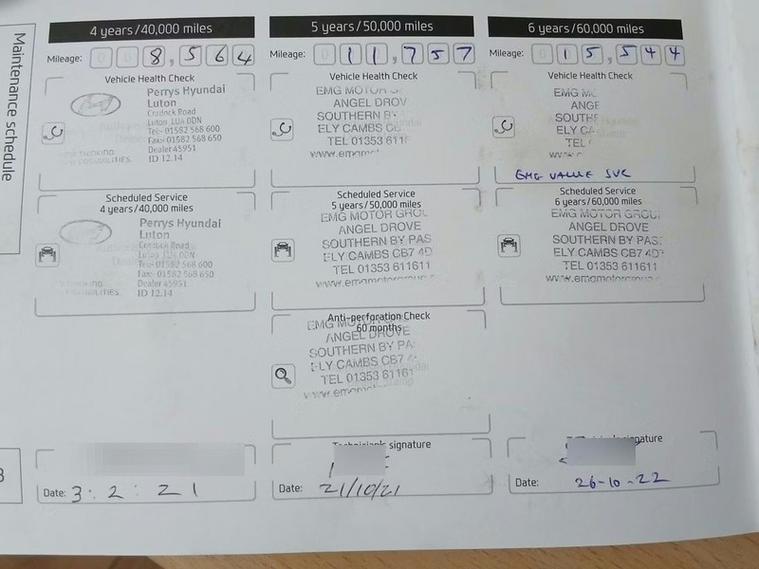 Maintenance schedule
4 years/40,000 miles
Mileage: 0 0 8, 5 6 4
Vehicle Health Check
Perrys Hyundai
Luton
Cradock Road
Luton LU4 0DN
Tel:- 01582 568 600
Fax:- 01582 568 650
Dealer 45951
ID 12.14
Scheduled Service
4 years/40,000 miles
Perrys Hyundai
Luton
Cradock Road
Luton LU4 0DN
Tel:- 01582 568 600
Fax:- 01582 568 650
Dealer 45951
ID 12.14
Date: 3 : 2 : 21
5 years/50,000 miles
Mileage: 0 1 1, 7 5 7
Vehicle Health Check
EMG MOTOR
ANGEL DROV
SOUTHERN BY
ELY CAMBS
TEL 01353 611
Scheduled Service
5 years/50,000 miles
EMG MOTOR GROU
ANGEL DROVE
SOUTHERN BY PAS
ELY CAMBS CB7 4D
TEL 01353 611611
www.emgmotorgroup
Anti-perforation Check
60 months
EMG MO
ANGEL DROVE
SOUTHERN BY PA
ELY CAMBS CB7
TEL 01353 61161
Technician's signature
Date: 21/10/21
6 years/60,000 miles
Mileage: 0 1 5, 5 4 4
Vehicle Health Check
EMG
ANGE
SOUTHE
ELY CA
TEL
EMG VALUE SVC
Scheduled Service
6 years/60,000 miles
EMG MOTOR GROU
ANGEL DROVE
SOUTHERN BY PAS
ELY CAMBS CB7 4D
TEL 01353 611611
www.emgmotorgroup
signature
Date: 26-10-22